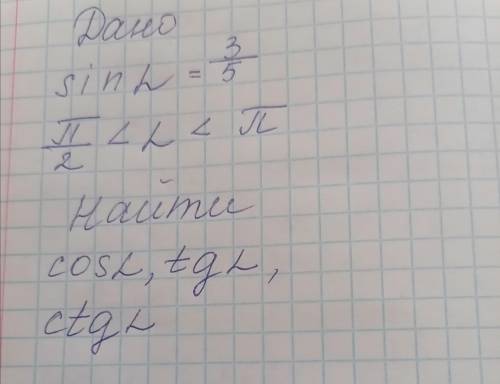 Дано
sin α = 3/5
π/2 < α < π
Найти
cosα, tgα,
ctgα